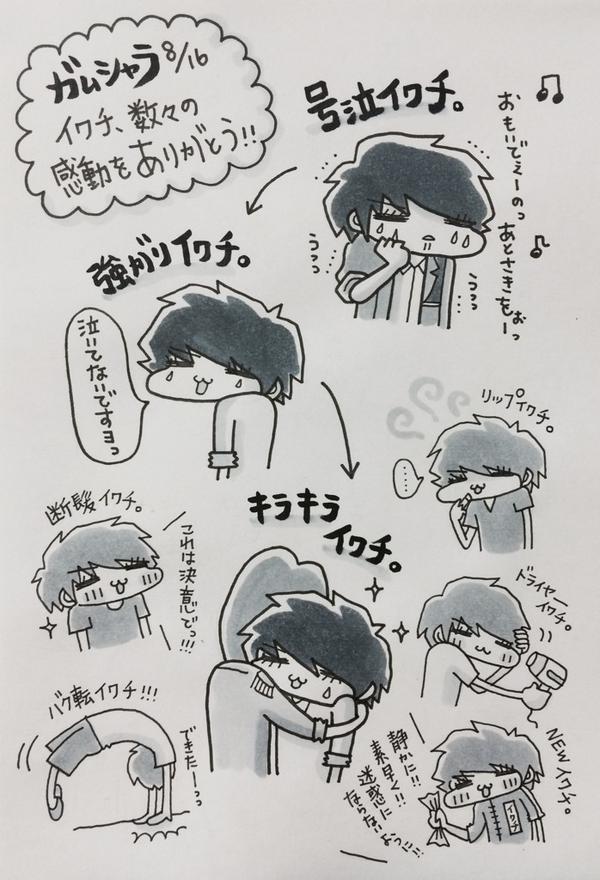 ガムシャラ 8/16
イワチ、数々の
感動をありがとう!!
号泣イワチ。
おもいでぇーのっ
あとさきをぉーっ
うっっ…
うっっ…
強がりイワチ。
泣いてないですヨっ
リップイワチ。
……
キラキラ
イワチ。
断髪イワチ。
これは決意でっ!!!
ドライヤー
イワチ。
バク転イワチ!!!
できたーーっっ
NEWイワチ。
静かに!!
素早く!!
迷惑に
ならないよっ!!
イワチ